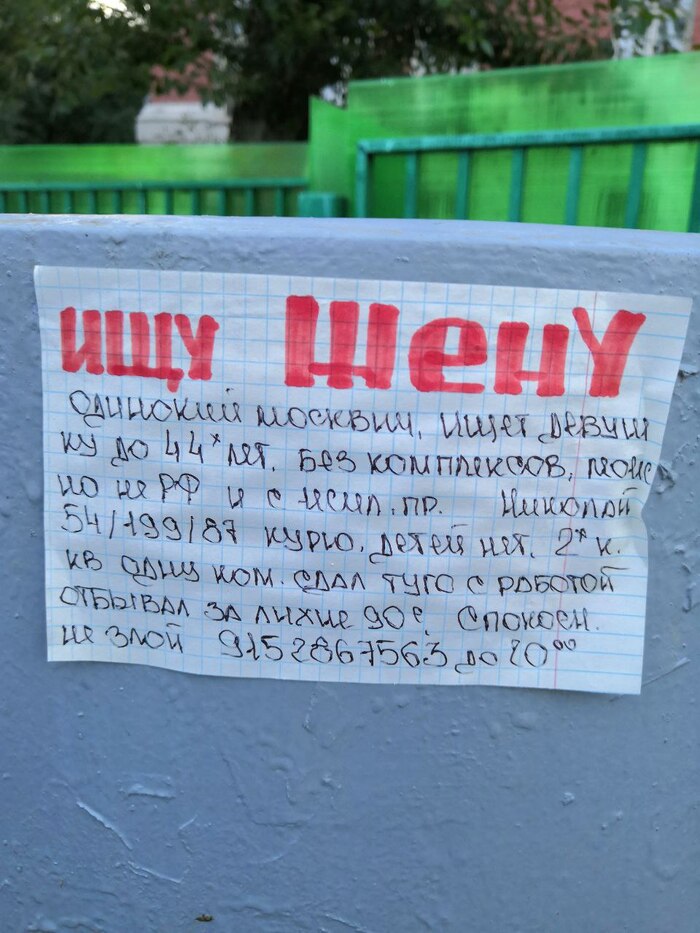 ищу жену
одинокий москвич. ищет девуш
ку до 44х лет. Без комплексов, мож
но не РФ и с жил. пр. Николай
54/199/87 курю. детей нет. 2х к.
кв одну ком. сдал туго с работой
отбывал за лихие 90е. Спокоен.
не злой 9152867563 до 20⁰⁰